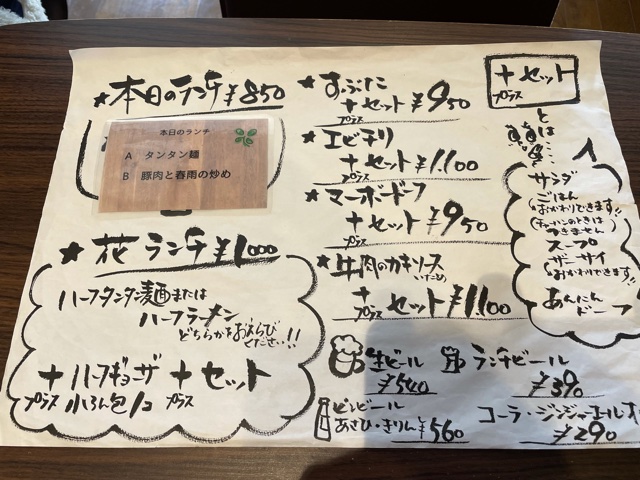 ★本日のランチ ¥850
本日のランチ
A タンタン麺
B 豚肉と春雨の炒め
★花ランチ ¥1000
ハーフタンタン麺または
ハーフラーメン
どちらかをおえらび
ください!!
+ハーフギョーザ +セット
プラス 小ろん包1コ プラス
★すぶた
+セット ¥950
プラス
★エビチリ
+セット ¥1,100
プラス
★マーボードーフ
+セット ¥950
プラス
★牛肉のカキソース
いため
+セット ¥1,100
プラス
+セット
プラス
とは…
サラダ
ごはん
(おかわりできます!!)
(チャーハンのときは
つきません)
スープ
ザーサイ
(おかわりできます!!)
あんにん
ドーフ
生ビール
¥540
ランチビール
¥390
ビンビール
あさひ・きりん ¥560
コーラ・ジンジャーエール・オ
¥290